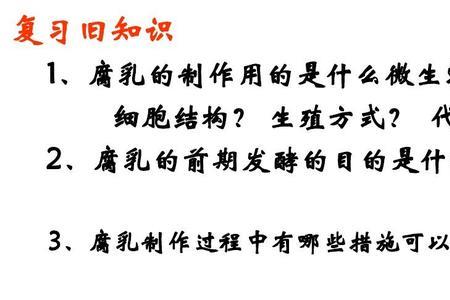 复习旧知识
1、腐乳的制作用的是什么微生
细胞结构？ 生殖方式？ 代
2、腐乳的前期发酵的目的是什
3、腐乳制作过程中有哪些措施可以